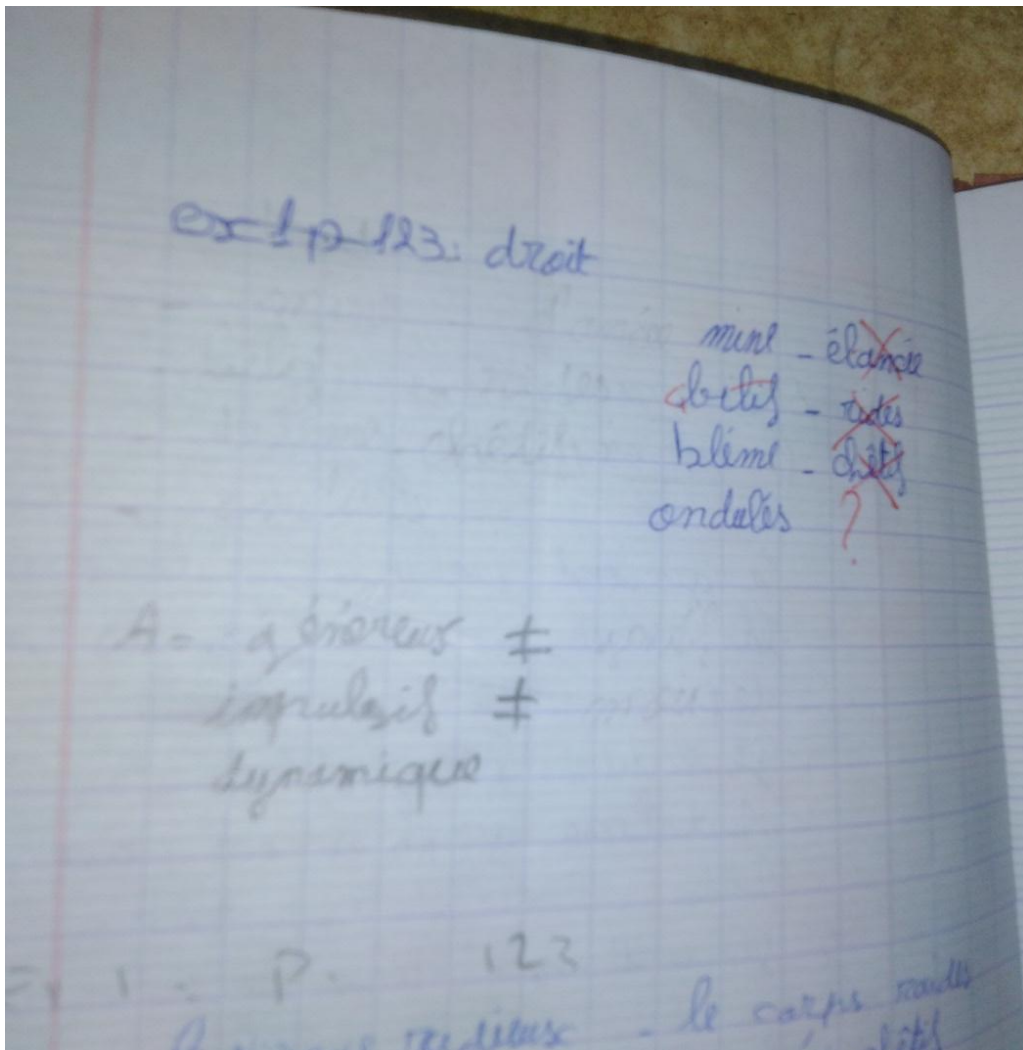 ex 1 p 123. droit
mine - élancée
chétif - raides
blême - chétif
ondulés ?
A - généreux ≠
impulsif ≠
dynamique
1 - P. 123
radieuse - le corps raides